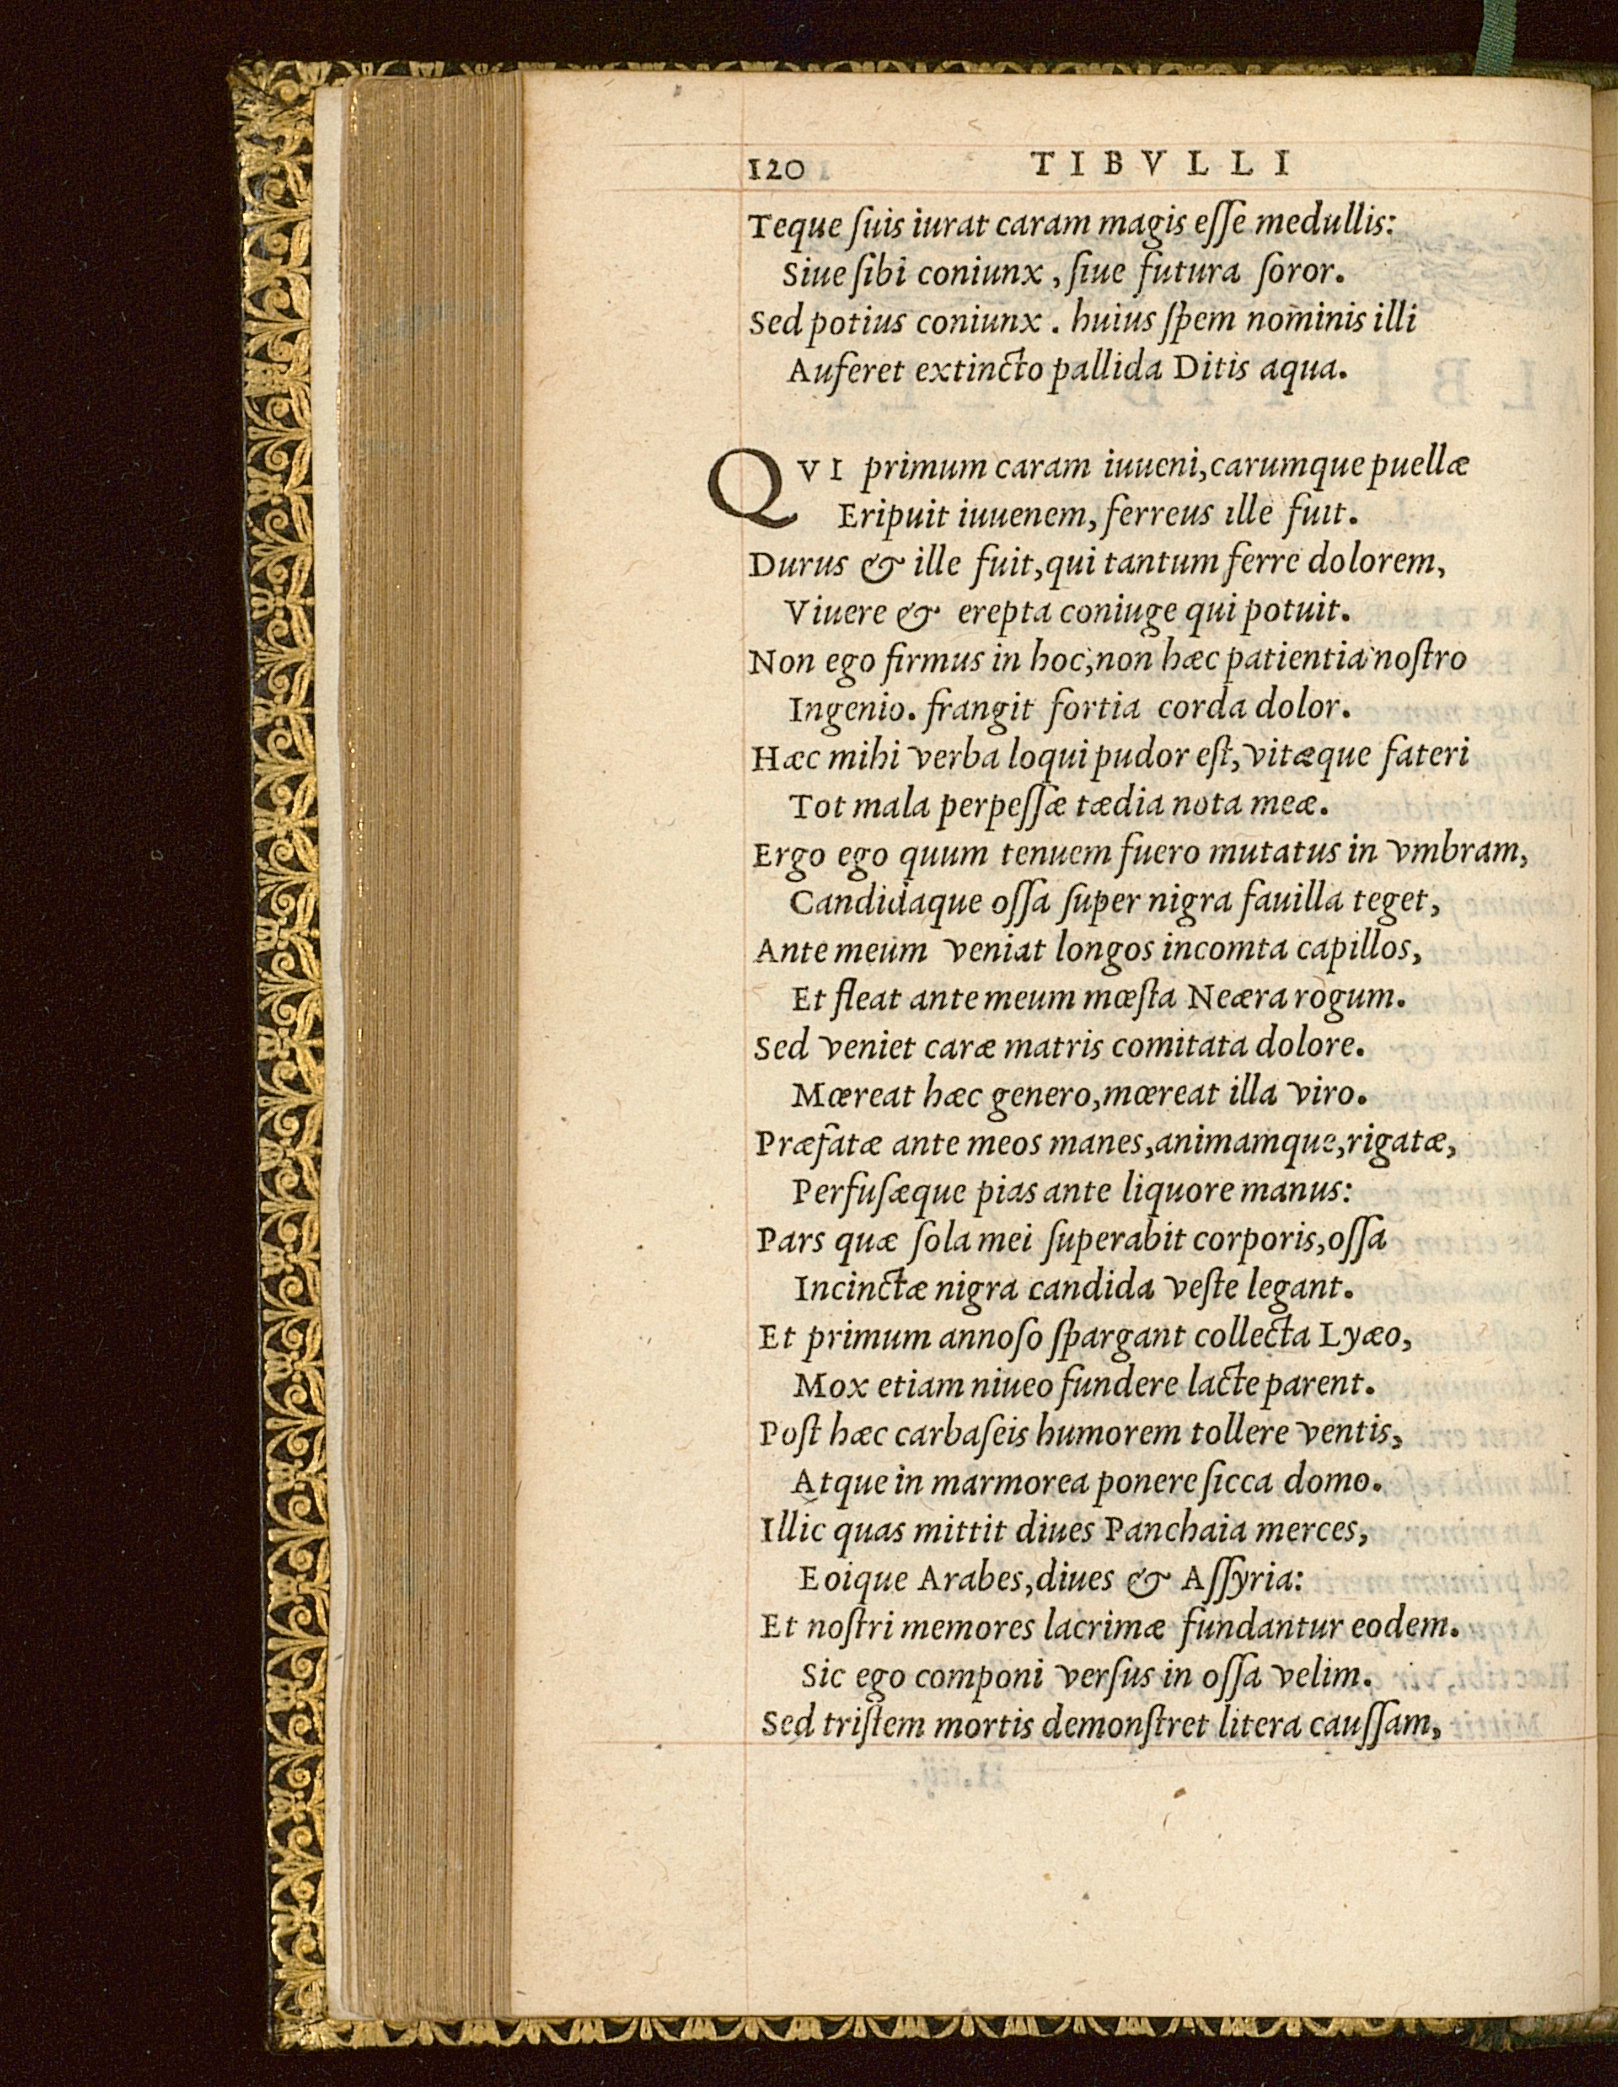 120 TIBVLLI
Teque ſuis iurat caram magis eſſe medullis:
Siue ſibi coniunx, ſiue futura ſoror.
Sed potius coniunx. huius ſpem nominis illi
Auferet extincto pallida Ditis aqua.
QVI primum caram iuueni, carumque puellæ
Eripuit iuuenem, ferreus ille fuit.
Durus & ille fuit, qui tantum ferre dolorem,
Viuere & erepta coniuge qui potuit.
Non ego firmus in hoc, non hæc patientia noſtro
Ingenio. frangit fortia corda dolor.
Hæc mihi verba loqui pudor eſt, vitæque fateri
Tot mala perpeſſæ tædia nota meæ.
Ergo ego quum tenuem fuero mutatus in vmbram,
Candidaque oſſa ſuper nigra fauilla teget,
Ante meum veniat longos incomta capillos,
Et fleat ante meum mœſta Neæra rogum.
Sed veniet caræ matris comitata dolore.
Mœreat hæc genero, mœreat illa viro.
Præfatæ ante meos manes, animamque, rigatæ,
Perfuſæque pias ante liquore manus:
Pars quæ ſola mei ſuperabit corporis, oſſa
Incinctæ nigra candida veſte legant.
Et primum annoſo ſpargant collecta Lyæo,
Mox etiam niueo fundere lacte parent.
Poſt hæc carbaſeis humorem tollere ventis,
Atque in marmorea ponere ſicca domo.
Illic quas mittit diues Panchaia merces,
Eoique Arabes, diues & Aſſyria:
Et noſtri memores lacrimæ fundantur eodem.
Sic ego componi verſus in oſſa velim.
Sed triſtem mortis demonſtret litera cauſſam,